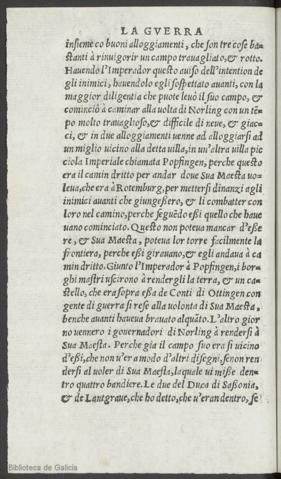 LA GVERRA
insieme co buoni alloggiamenti, che son tre cose ba=
stanti à rinuigorir un campo trauagliato, & rotto.
Hauendo l'Imperador questo auiso dell'intention de
gli inimici, hauendolo egli sospettato auanti, con la
maggior diligentia che puote leuò il suo campo, &
cominciò à caminar alla uolta di Norling con un tē=
po molto trauaglioso, & difficile di neue, & giac=
ci, & in due alloggiamenti uenne ad alloggiarsi ad
un miglio uicino alla detta uilla, in un'altra uilla pic
ciola Imperiale chiamata Popfingen, perche questo
era il camin dritto per andar doue Sua Maesta uo=
leua, che era à Rotemburg, per mettersi dinanzi agli
inimici auanti che giungessero, & li combatter con
loro nel camino, perche seguēdo essi quello che haue
uano cominciato. Questo non poteua mancar d'esse
re, & Sua Maesta, poteua lor torre facilmente la
frontiera, perche essi girauano, & egli andaua à ca
min dritto. Giunto l'Imperador à Popfingen, i bor=
ghi mastri uscirono à rendergli la terra, & un ca=
stello, che era sopra essa de Conti di Ottingen con
gente di guerra si rese alla uolonta di Sua Maesta,
benche auanti haueua brauato alquāto. L'altro gior
no uennero i gouernadori di Norling à rendersi à
Sua Maesta. Perche gia il campo suo era si uicino
d'essi, che non u'era modo d'altri disegni, se non ren=
dersi al uoler di Sua Maesta, laquale ui misse den=
tro quattro bandiere. Le due del Duca di Sassonia,
& de Lantgraue, che ho detto, che u'eran dentro, se
Biblioteca de Galicia